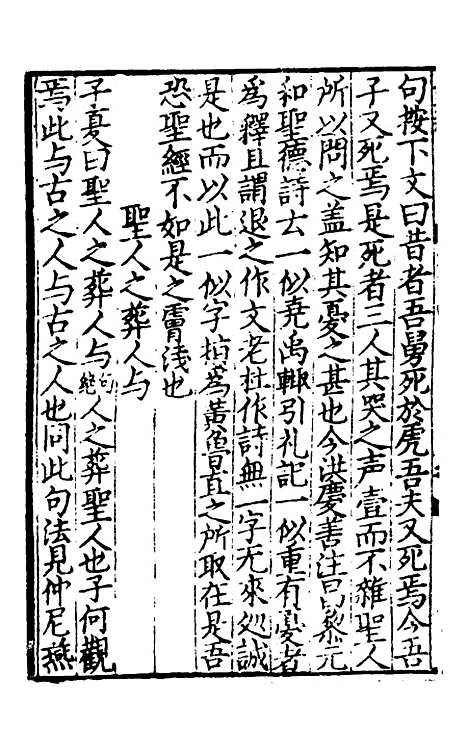 句按下文曰昔者吾舅死於虎吾夫又死焉今吾
子又死焉是死者三人其哭之声壹而不雜聖人
所以問之盖知其憂之甚也今洪慶善注昌黎元
和聖德詩云一似堯禹輙引礼記一似重有憂者
為釋且謂退之作文老杜作詩無一字无來处誠
是也而以此一似字栺為黃魯直之所取在是吾
恐聖經不如是之膚浅也
聖人之葬人与
子夏曰聖人之葬人与句絶人之葬聖人也子何觀
焉此与古之人与古之人也同此句法見仲尼燕